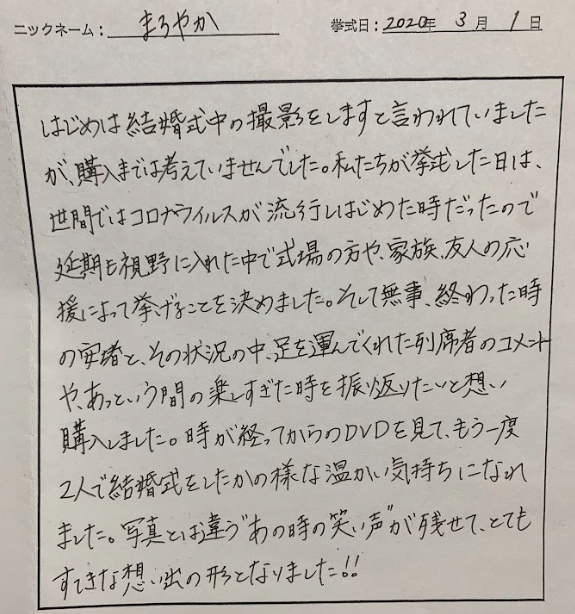 ニックネーム： まろやか 挙式日： 2020年 3 月 1 日
はじめは結婚式中の撮影をしますと言われていました
が、購入までは考えていませんでした。私たちが挙式した日は、
世間ではコロナウイルスが流行しはじめた時だったので
延期も視野に入れた中で式場の方や、家族、友人の応
援によって挙げることを決めました。そして無事、終わった時
の安堵と、その状況の中、足を運んでくれた列席者のコメント
や、あっという間の楽しすぎた時を振り返りたいと想い
購入しました。時が経ってからのDVDを見て、もう一度
2人で結婚式をしたかの様な温かい気持ちになれ
ました。写真とは違う"あの時の笑い声"が残せて、とても
すてきな想い出の形となりました!!